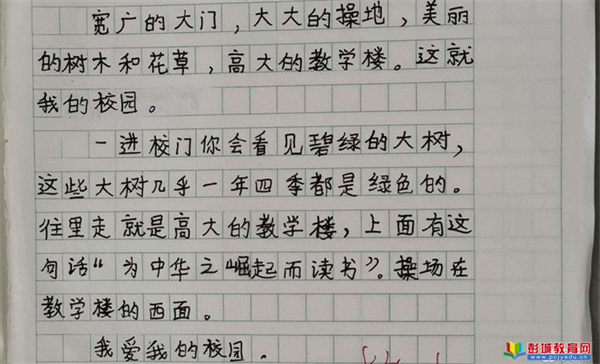 宽广的大门，大大的操地，美丽
的树木和花草，高大的教学楼。这就
我的校园。
一进校门你会看见碧绿的大树，
这些大树几乎一年四季都是绿色的。
往里走就是高大的教学楼，上面有这
句话“为中华之崛起而读书”。操场在
教学楼的西面。
我爱我的校园。
彭城教育网
www.pcjyedu.cn